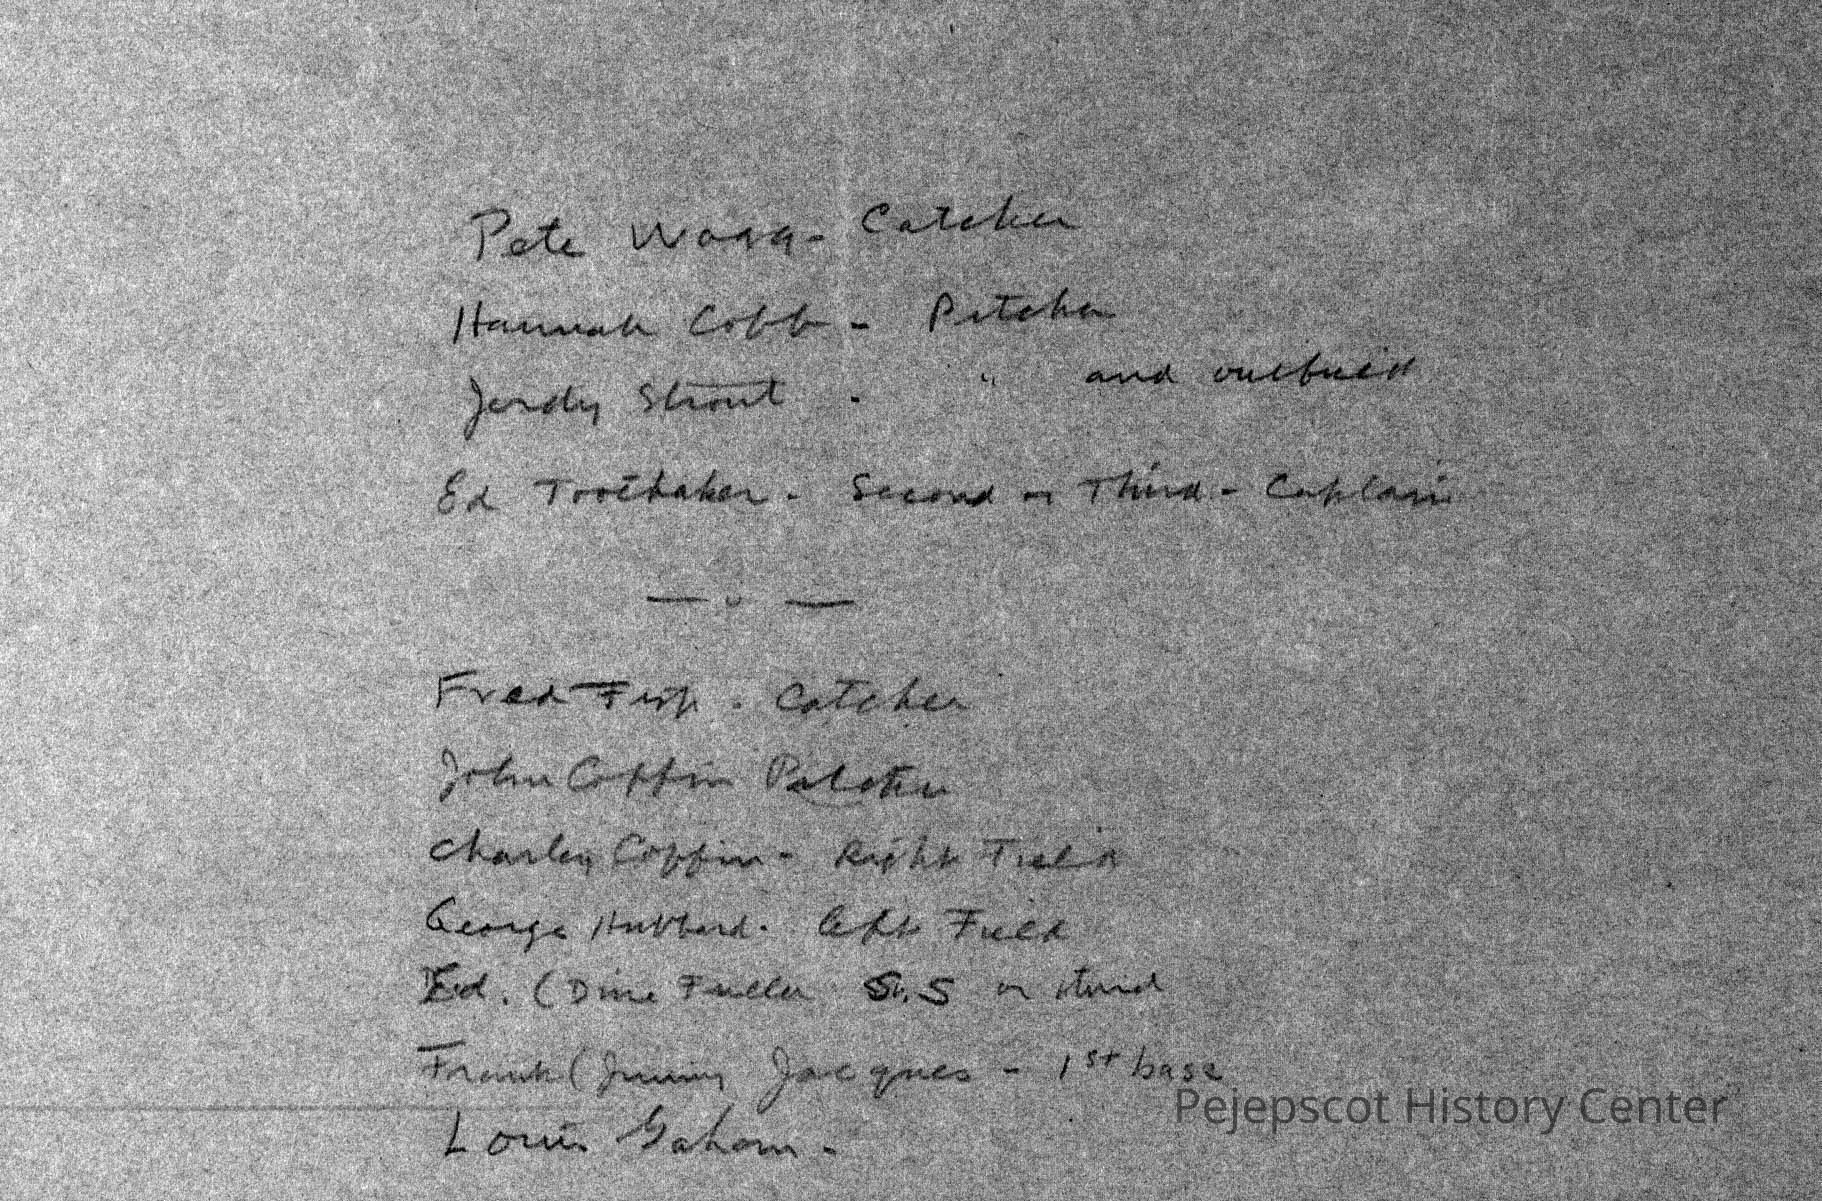 Pete Woaq - Catcher
Hannah Cobb - Pitcher
Jordy Strout - " and outfield
Ed Toothaker - Second or Third - Captain
— " —
Fred Fisk - Catcher
John Coffin Pitcher
Charley Coffin - Right Field
George Hubbard - left Field
Ed. (Dine Fuller S.S or third
Frank (Jimmy Jacques - 1st base
Pejepscot History Center
Louis Gahan -